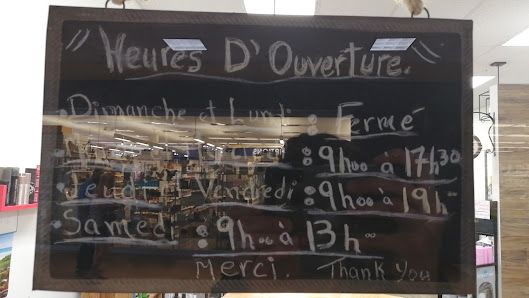 Heures D'Ouverture.
• Dimanche et Lundi : Fermé
• : 9h00 à 17h30
• Jeudi et Vendredi : 9h00 à 19h
• Samedi : 9h00 à 13h00
Merci. Thank You